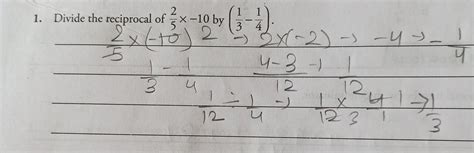 1. Divide the reciprocal of 2/5 × −10 by (1/3 − 1/4).
2/5 × (-10) 2 → 2×(-2) → -4 → -1/4
1/3 - 1/4 4-3/12 → 1/12
1/12 ÷ 1/4 → 1/12 3 × 4 1/1 → 1/3